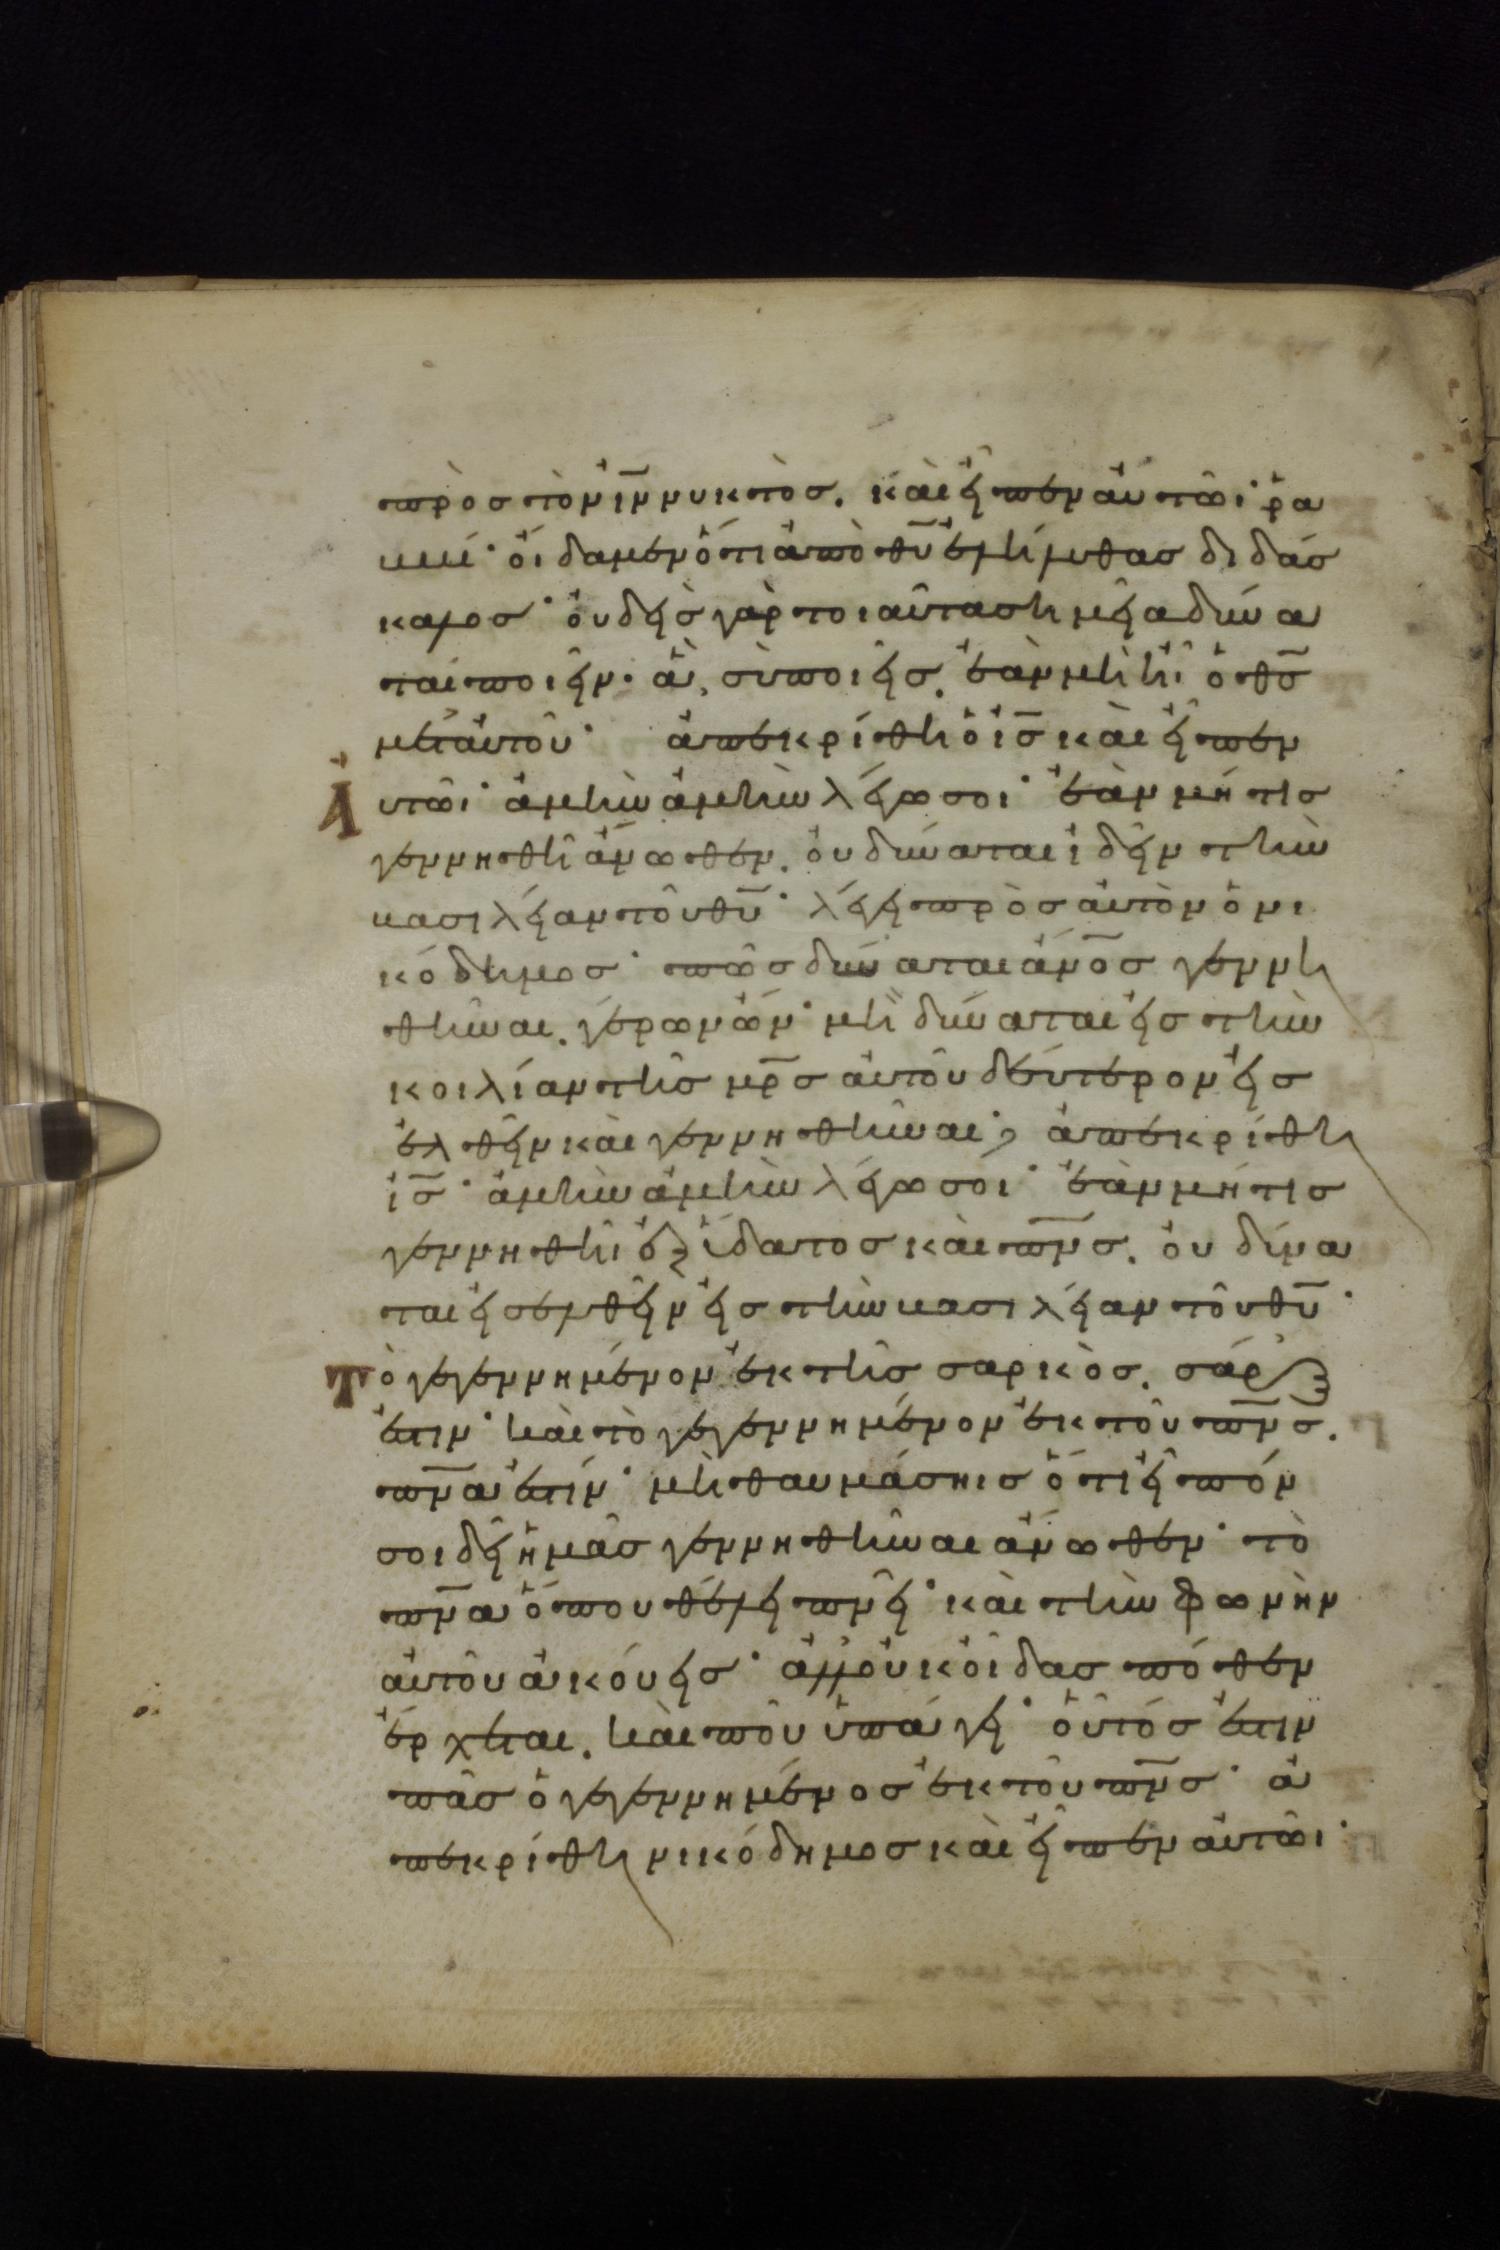 πρὸς τὸν ι̅ν̅ νυκτὸς. καὶ εἶπεν αὐτῶι· ῥα
ββί· οἴδαμεν ὅτι ἀπὸ θ̅υ̅ ἐλήλυθας διδάσ
καλος· οὐδεὶς γὰρ τοιαῦτα σημεῖα δύνα
ται ποιεῖν· ἃ σὺ ποιεῖς. ἐὰν μὴ ἦι ὁ θ̅σ̅
μετ' αὐτοῦ· ἀπεκρίθη ὁ ι̅σ̅ καὶ εἶπεν
Ἀυτῶι· ἀμὴν ἀμὴν λέγω σοι· ἐὰν μή τις
γεννηθῆ ἄνωθεν. οὐ δύναται ἰδεῖν τὴν
βασιλείαν τοῦ θ̅υ̅· λέγει πρὸς αὐτὸν ὁ νι
κόδημος· πῶς δύναται ἄν̅ο̅ς γεννη
θῆναι. γέρων ὤν· μὴ δύναται εἰς τὴν
κοιλίαν τῆς μ̅ρ̅ς αὐτοῦ δεύτερον εἰσ
ελθεῖν καὶ γεννηθῆναι; ἀπεκρίθη
ι̅σ̅· ἀμὴν ἀμὴν λέγω σοί· ἐὰν μή τις
γεννηθῆι ἐξ ὕδατος καὶ π̅ν̅ς. οὐ δύνα
ται εἰσελθεῖν εἰς τὴν βασιλείαν τοῦ θ̅υ̅·
Τὸ γεγεννημένον ἐκ τῆς σαρκὸς. σάρξ
ἐστιν· καὶ τὸ γεγεννημένον ἐκ τοῦ π̅ν̅ς.
π̅ν̅α ἐστίν· μὴ θαυμάσηις ὅτι εἶπόν
σοι δεῖ ἡμᾶς γεννηθῆναι ἄνωθεν· τὸ
π̅ν̅α ὅπου θέλει πνεῖ· καὶ τὴν φωνὴν
αὐτοῦ ἀκούεις· ἀλλ' οὐκ οἶδας πόθεν
ἔρχεται. καὶ ποῦ ὑπάγει· οὗτός ἐστιν
πᾶς ὁ γεγεννημένος ἐκ τοῦ π̅ν̅ς· ἀ
πεκρίθη νικόδημος καὶ εἶπεν αὐτῶι·